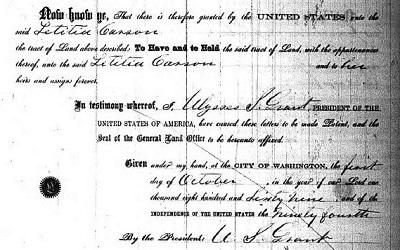 Now know ye, That there is therefore granted by the UNITED STATES unto the
said Letitia Carson
the tract of Land above described: To Have and to Hold the said tract of Land, with the appurtenances
thereof, unto the said Letitia Carson and to her
heirs and assigns forever.
In testimony whereof, I, Ulysses S. Grant, PRESIDENT OF THE
UNITED STATES OF AMERICA, have caused these letters to be made Patent, and the
Seal of the General Land Office to be hereunto affixed.
Given under my hand, at the CITY OF WASHINGTON, the first
day of October, in the year of our Lord one
thousand eight hundred and Sixty nine, and of the
INDEPENDENCE OF THE UNITED STATES the Ninety fourth
By the President: U. S. Grant